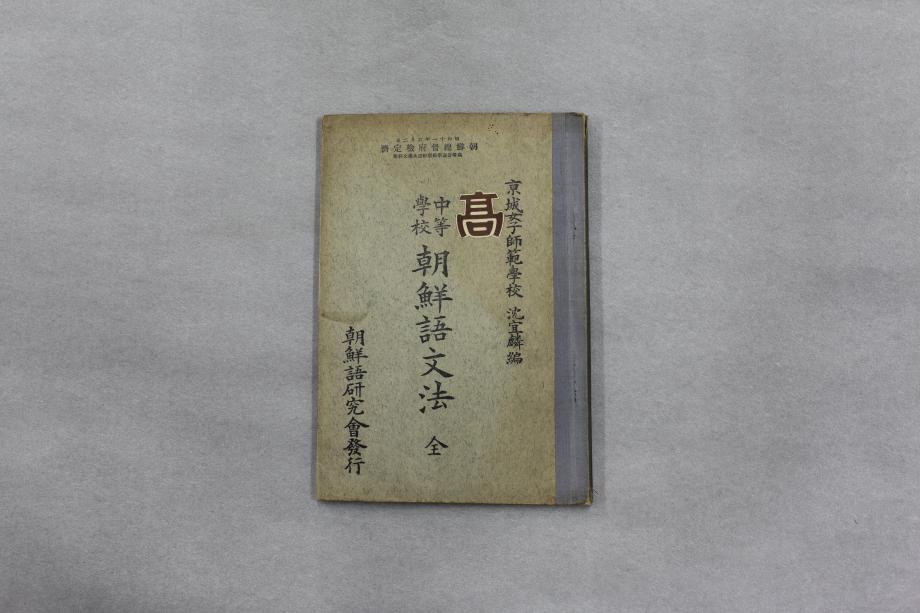 朝鮮總督府檢定濟
高
京城女子師範學校 沈宜麟編
中等
學校
朝鮮語文法 全
朝鮮語研究會發行